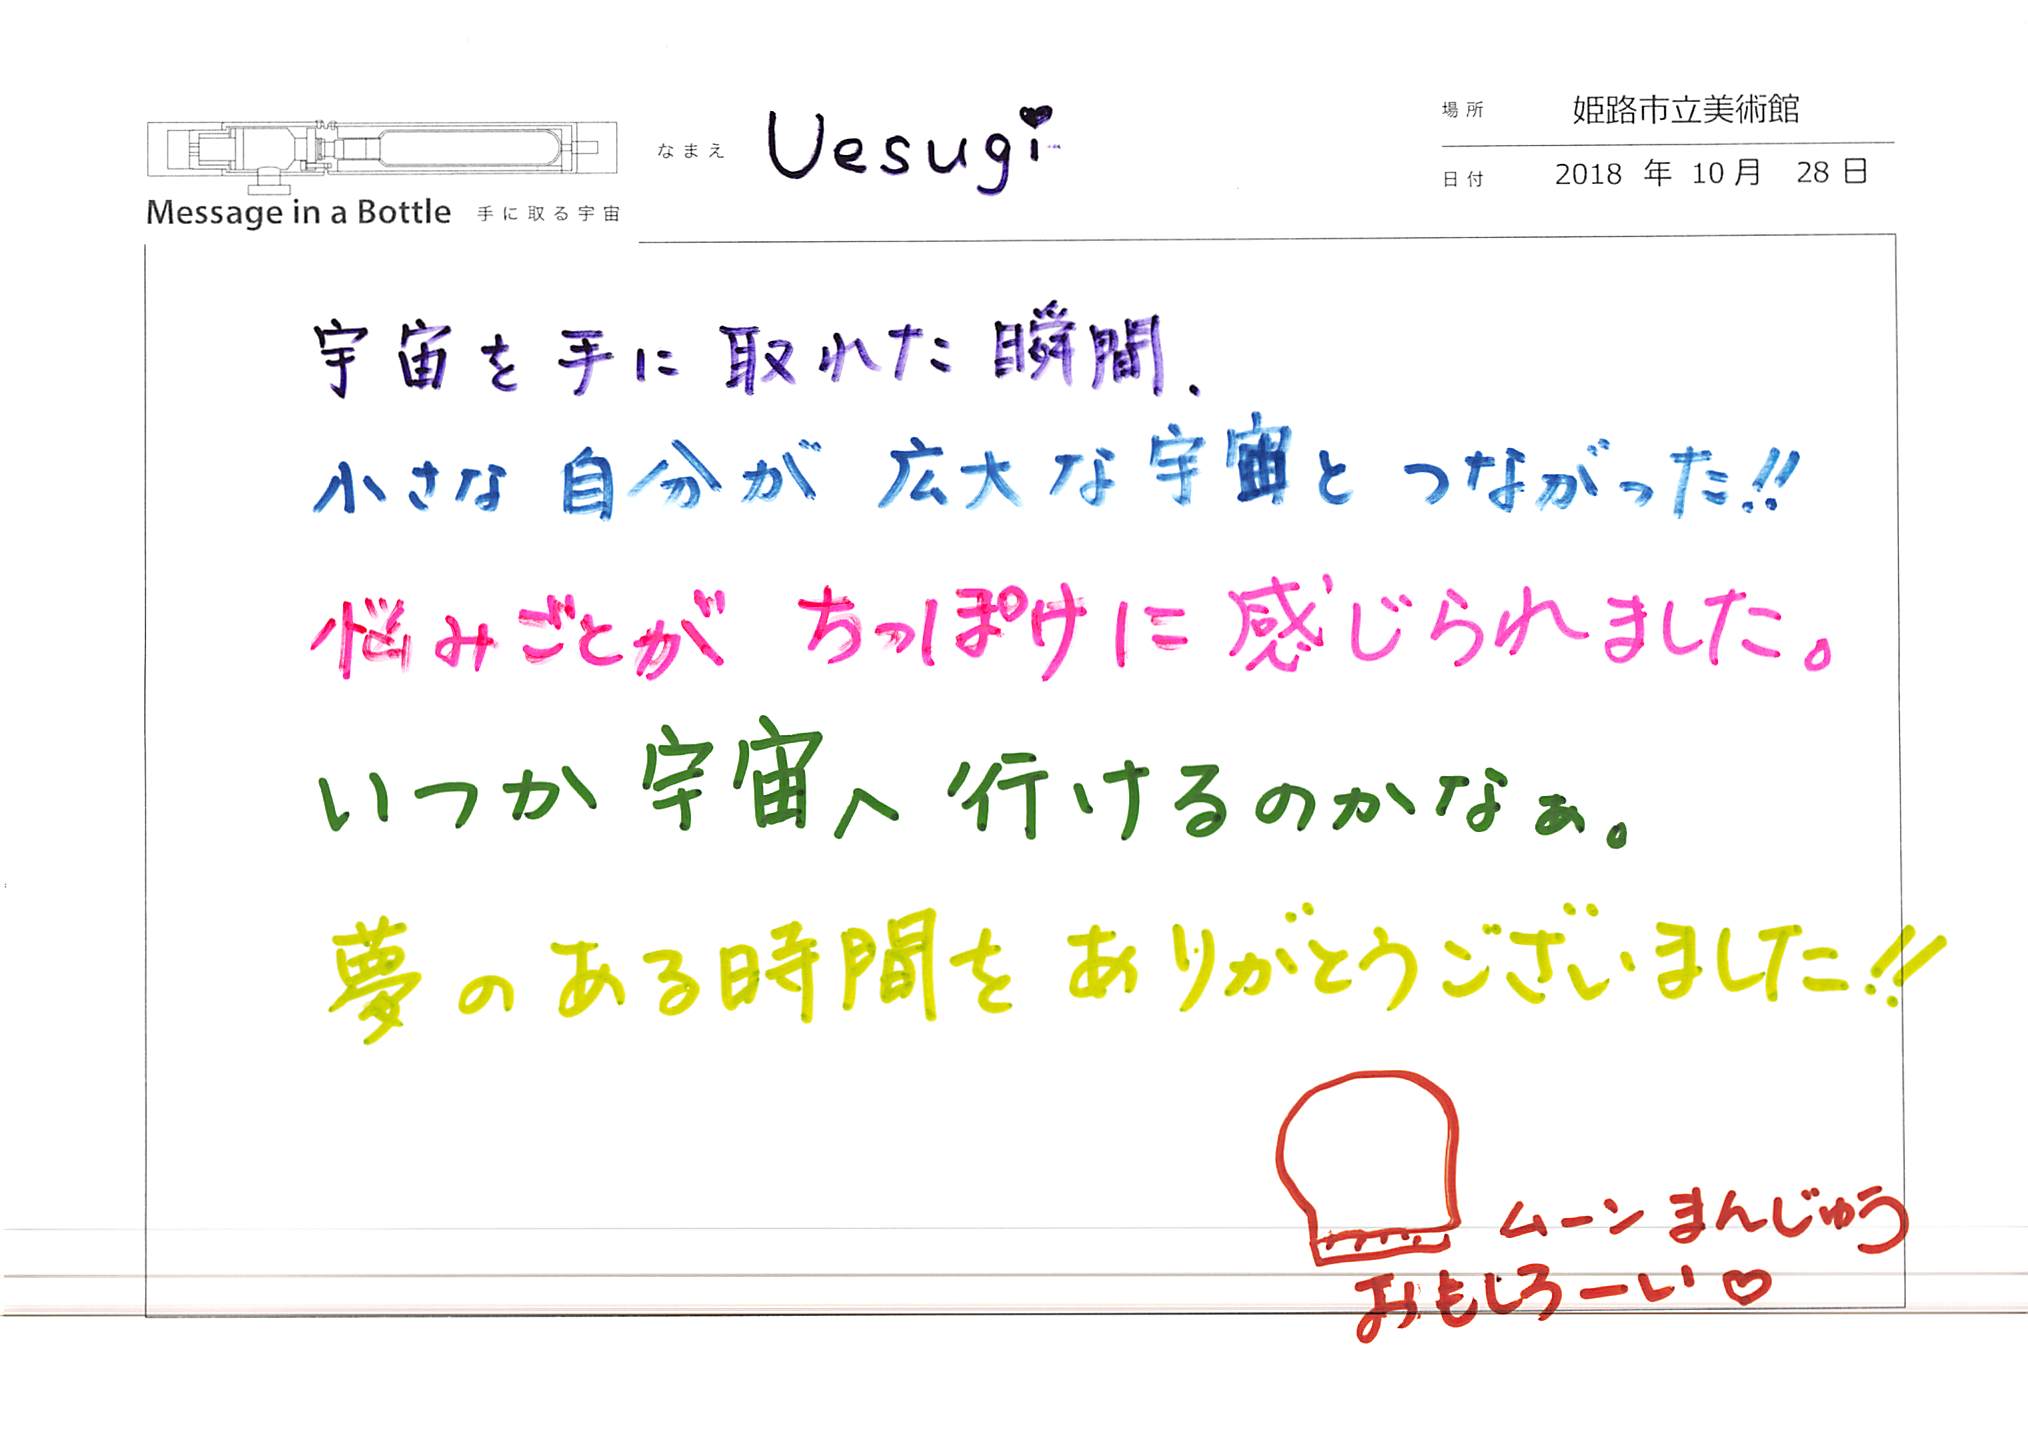 なまえ Uesugi
場所 姫路市立美術館
日付 2018 年 10 月 28 日
Message in a Bottle 手に取る宇宙
宇宙を手に取れた瞬間.
小さな自分が広大な宇宙とつながった!!
悩みごとがちっぽけに感じられました。
いつか宇宙へ行けるのかなぁ。
夢のある時間をありがとうございました!!
ムーンまんじゅう
おもしろーい♡